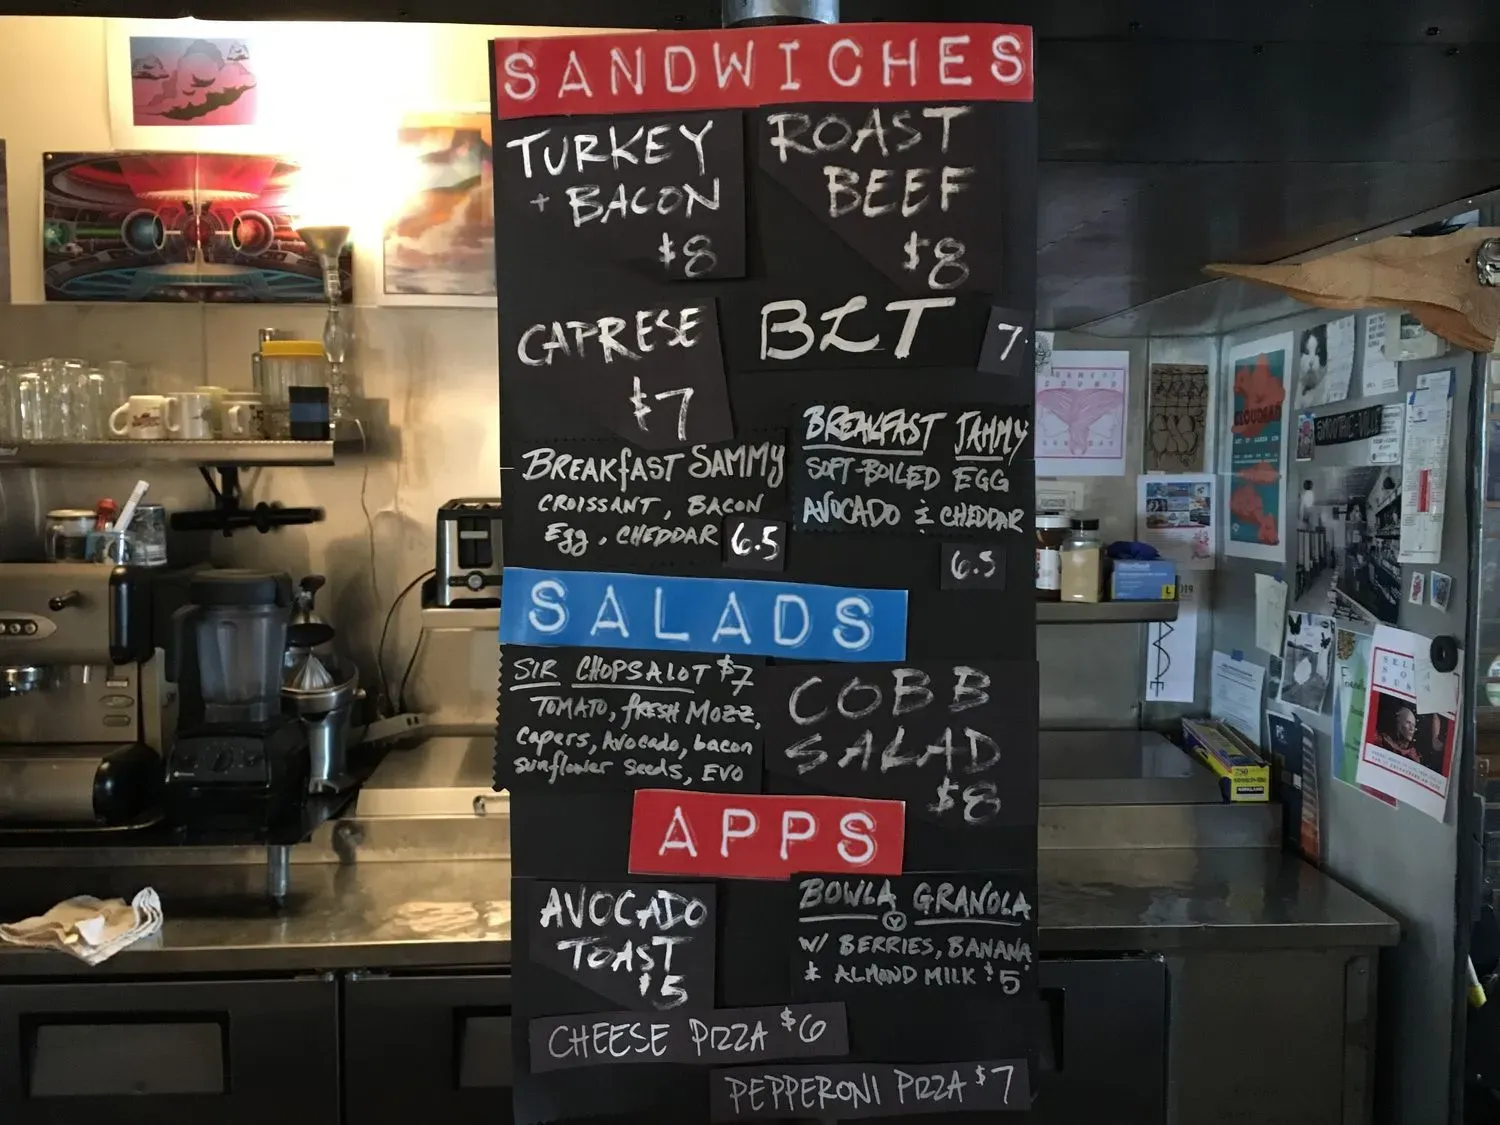 SANDWICHES
TURKEY
+ BACON
$8
ROAST
BEEF
$8
CAPRESE
$7
BLT 7.
BREAKFAST SAMMY
CROISSANT, BACON
Egg, CHEDDAR 6.5
BREAKFAST JAMMY
SOFT-BOILED EGG
AVOCADO & CHEDDAR
6.5
SALADS
SIR CHOPSALOT $7
TOMATO, fRESH MOZZ,
Capers, Avocado, bacon
sunflower seeds, EVO
COBB
SALAD
$8
APPS
AVOCADO
TOAST
$5
BOWLA GRANOLA
V
W/ BERRIES, BANANA
& ALMOND MILK $5
CHEESE PIZZA $6
PEPPERONI PIZZA $7
CLOUDLAND
KIRKLAND